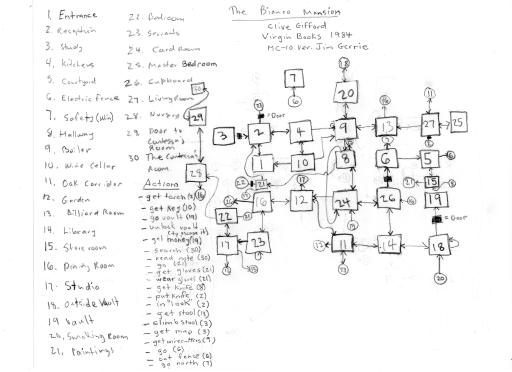 The Bianco Mansion
Clive Gifford
Virgin Books 1984
MC-10 Ver. Jim Gerrie
1. Entrance
2. Reception
3. Study
4. Kitchens
5. Courtyard
6. Electric fence
7. Safety (Win)
8. Hallway
9. Boiler
10. Wine Cellar
11. Oak Corridor
12. Garden
13. Billiard Room
14. Library
15. Store room
16. Dining Room
17. Studio
18. Outside Vault
19. Vault
20. Smoking Room
21. Paintings
22. Bedroom
23. Servants
24. Card Room
25. Master Bedroom
26. Cupboard
27. Living Room
28. Nursery
29. Door to
Room
30. The
Room
Actions
- get torch
- get key (10)
- go vault (19)
- unlock vault
- get money (19)
- search (30)
- read note (30)
- go (21)
- get gloves (21)
- wear gloves (21)
- get knife (8)
- put knife (2)
- in "look" (2)
- get stool (13)
- climb stool (3)
- get map (3)
- go (6)
- cut fence (6)
- go north (7)
30
29
28
7
6
18
20
3
2
= Door
4
9
13
27
25
11
1
10
8
6
5
21
15
19
= Door
16
12
24
26
22
17
23
11
14
18
20